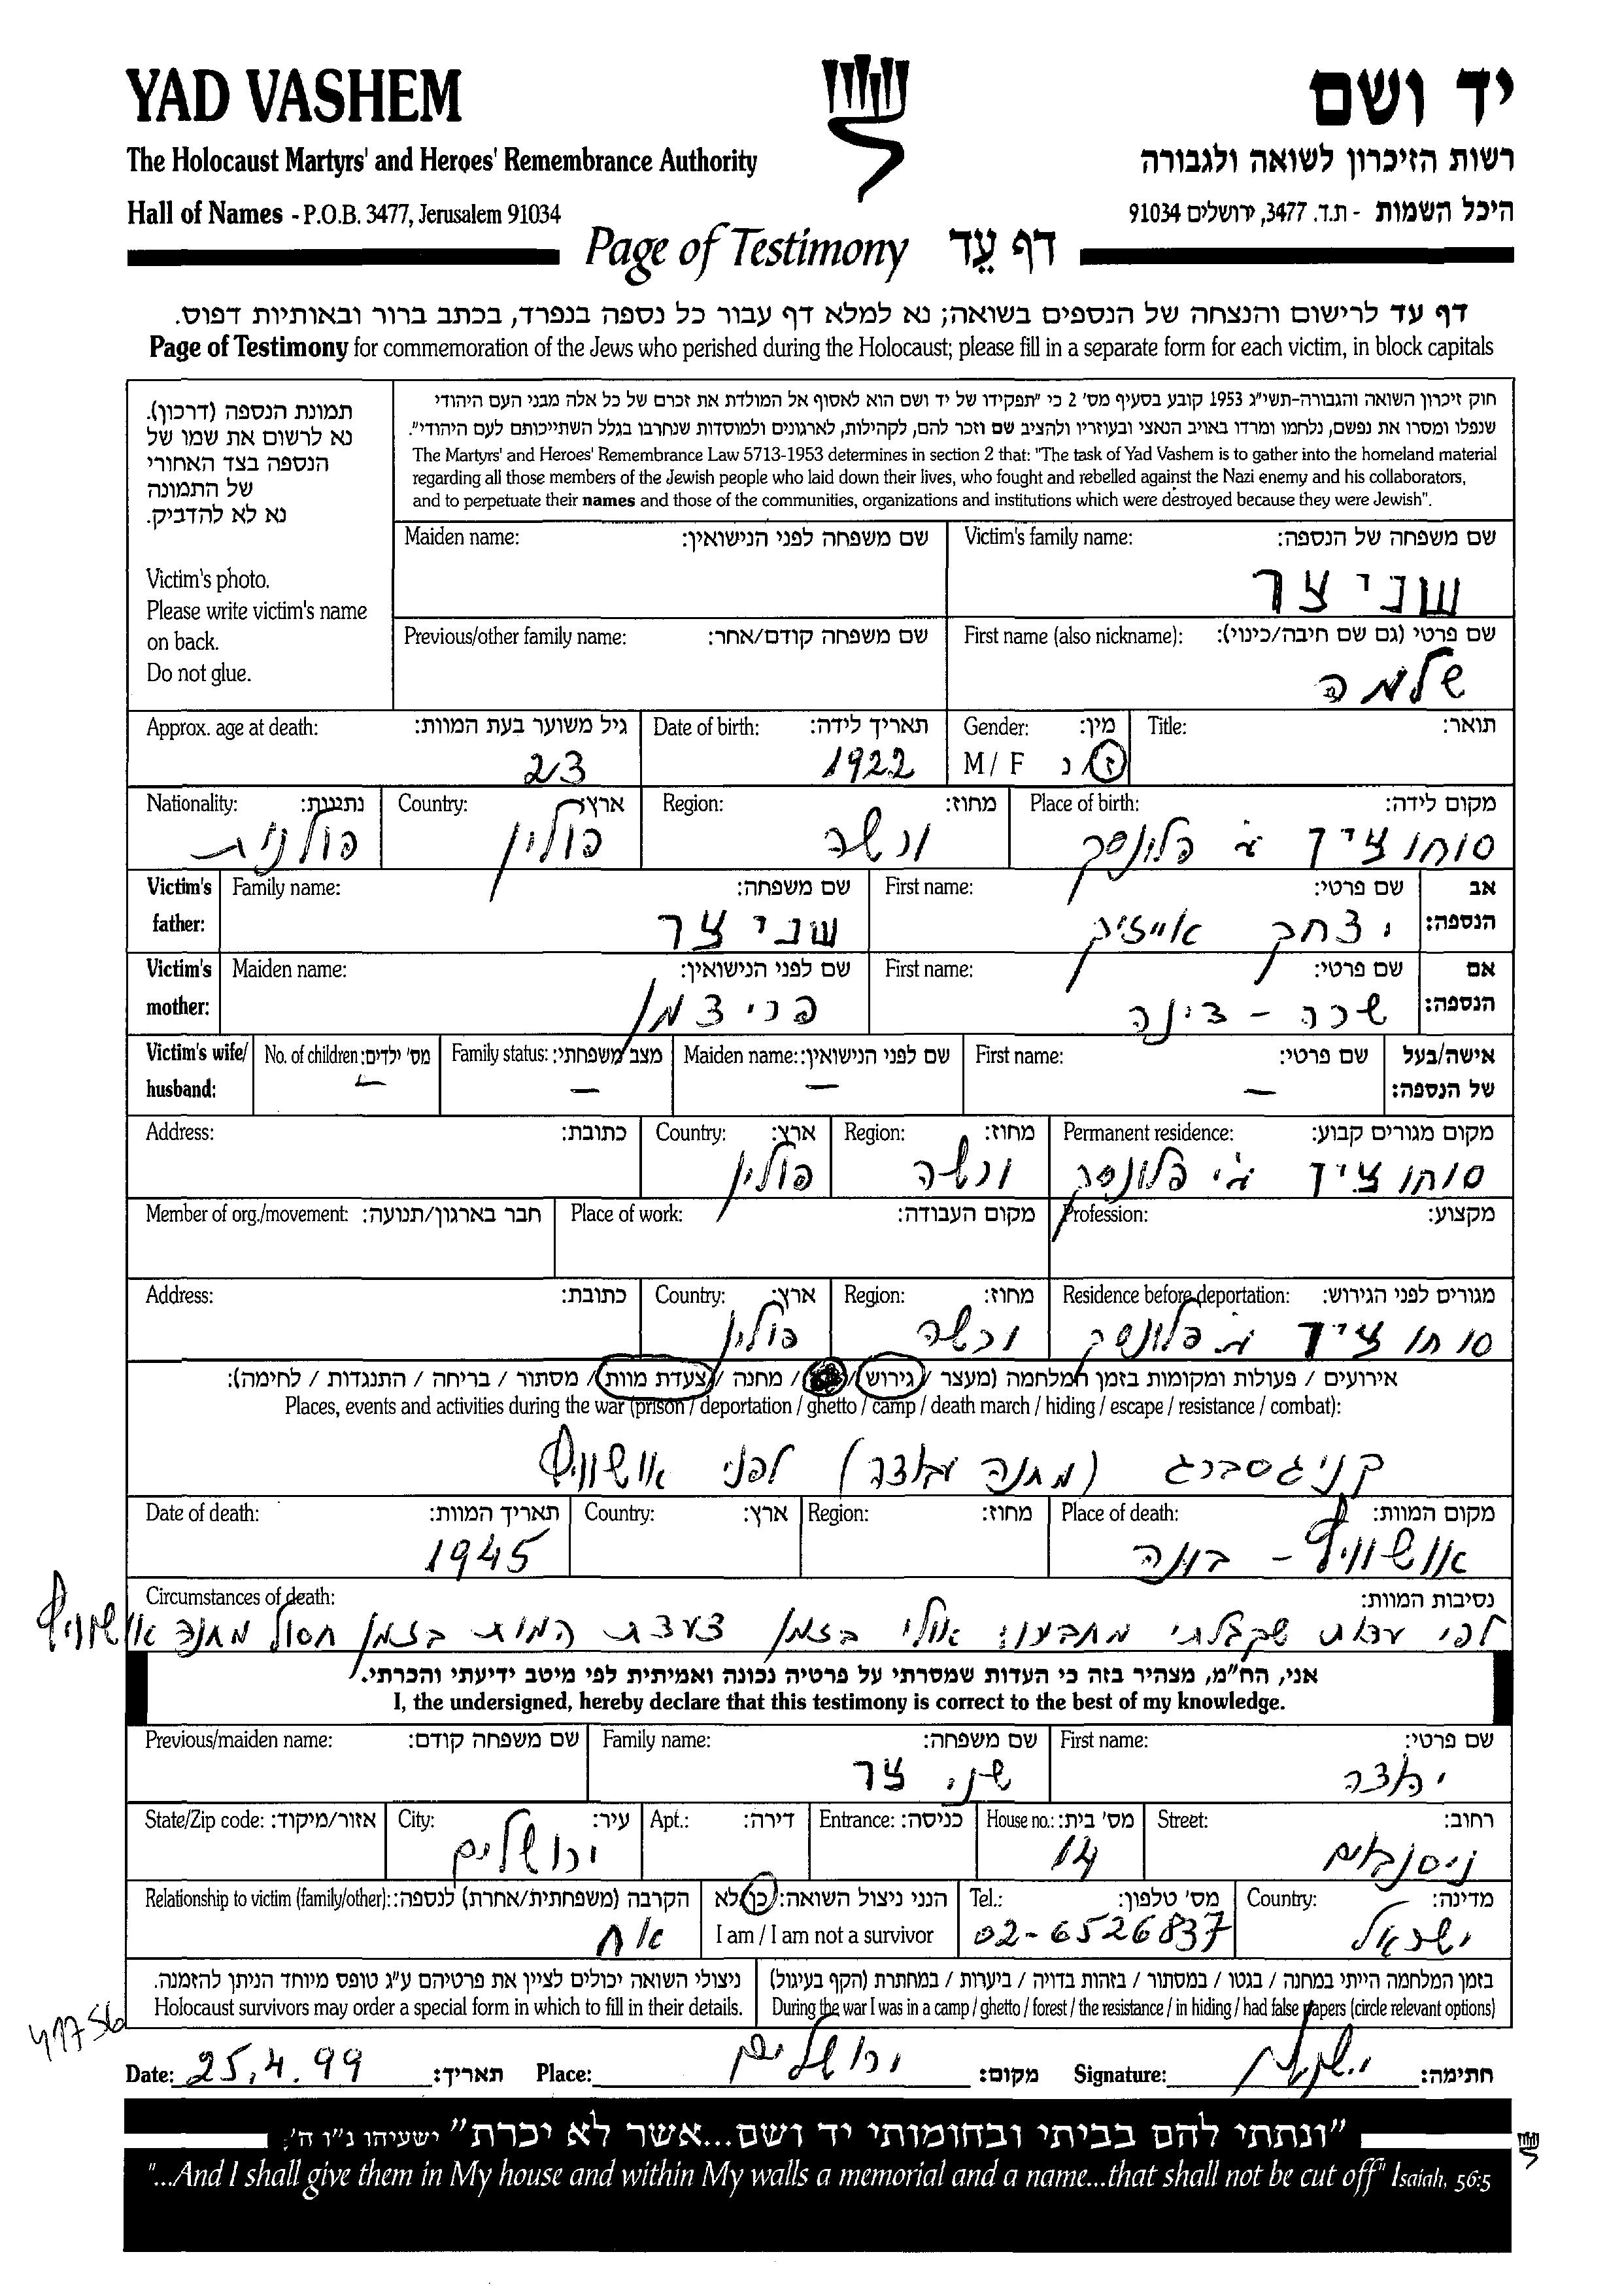 YAD VASHEM
יד ושם
The Holocaust Martyrs' and Heroes' Remembrance Authority
רשות הזיכרון לשואה ולגבורה
Hall of Names - P.O.B. 3477, Jerusalem 91034
היכל השמות - ת.ד. 3477, ירושלים 91034
Page of Testimony דף עֵד
דף עד לרישום והנצחה של הנספים בשואה; נא למלא דף עבור כל נספה בנפרד, בכתב ברור ובאותיות דפוס.
Page of Testimony for commemoration of the Jews who perished during the Holocaust; please fill in a separate form for each victim, in block capitals
תמונת הנספה (דרכון).
נא לרשום את שמו של
הנספה בצד האחורי
של התמונה
נא לא להדביק.
Victim's photo.
Please write victim's name
on back.
Do not glue.
חוק זיכרון השואה והגבורה-תשי"ג 1953 קובע בסעיף מס' 2 כי "תפקידו של יד ושם הוא לאסוף אל המולדת את זכרם של כל אלה מבני העם היהודי
שנפלו ומסרו את נפשם, נלחמו ומרדו באויב הנאצי ובעוזריו ולהציב שם וזכר להם, לקהילות, לארגונים ולמוסדות שנחרבו בגלל השתייכותם לעם היהודי".
The Martyrs' and Heroes' Remembrance Law 5713-1953 determines in section 2 that: "The task of Yad Vashem is to gather into the homeland material
regarding all those members of the Jewish people who laid down their lives, who fought and rebelled against the Nazi enemy and his collaborators,
and to perpetuate their names and those of the communities, organizations and institutions which were destroyed because they were Jewish".
Maiden name: שם משפחה לפני הנישואין:
Victim's family name: שם משפחה של הנספה:
שניצר
Previous/other family name: שם משפחה קודם/אחר:
First name (also nickname): שם פרטי (גם שם חיבה/כינוי):
שלמה
Approx. age at death: גיל משוער בעת המוות:
23
Date of birth: תאריך לידה:
1922
Gender: מין:
M / F ז/נ
Title: תואר:
Nationality: נתינות:
פולנית
Country: ארץ:
פולין
Region: מחוז:
ורשה
Place of birth: מקום לידה:
סוחוצין ע"י פלונסק
Victim's father: אב הנספה:
Family name: שם משפחה:
שניצר
First name: שם פרטי:
יצחק אייזיק
Victim's mother: אם הנספה:
Maiden name: שם לפני הנישואין:
פריצמן
First name: שם פרטי:
שרה - דינה
Victim's wife/husband: אישה/בעל של הנספה:
No. of children: מס' ילדים:
–
Family status: מצב משפחתי:
–
Maiden name: שם לפני הנישואין:
–
First name: שם פרטי:
–
Address: כתובת:
Country: ארץ:
פולין
Region: מחוז:
ורשה
Permanent residence: מקום מגורים קבוע:
סוחוצין ע"י פלונסק
Member of org./movement: חבר בארגון/תנועה:
Place of work: מקום העבודה:
Profession: מקצוע:
Address: כתובת:
Country: ארץ:
פולין
Region: מחוז:
ורשה
Residence before deportation: מגורים לפני הגירוש:
סוחוצין ע"י פלונסק
אירועים / פעולות ומקומות בזמן המלחמה (מעצר / גירוש / / מחנה / צעדת מוות / מסתור / בריחה / התנגדות / לחימה):
Places, events and activities during the war (prison / deportation / ghetto / camp / death march / hiding / escape / resistance / combat):
קניגסברג (מחנה עבודה) לפני אושוויץ
Date of death: תאריך המוות:
1945
Country: ארץ:
Region: מחוז:
Place of death: מקום המוות:
אושוויץ - בונה
Circumstances of death: נסיבות המוות:
לפי עדות שקבלתי אולי בזמן צעדת המות בזמן חסול מחנה אושוויץ
אני, הח"מ, מצהיר בזה כי העדות שמסרתי על פרטיה נכונה ואמיתית לפי מיטב ידיעתי והכרתי.
I, the undersigned, hereby declare that this testimony is correct to the best of my knowledge.
Previous/maiden name: שם משפחה קודם:
Family name: שם משפחה:
שניצר
First name: שם פרטי:
יהודה
State/Zip code: אזור/מיקוד:
City: עיר:
ירושלים
Apt.: דירה:
Entrance: כניסה:
House no.: מס' בית:
14
Street: רחוב:
ניסנבוים
Relationship to victim (family/other): הקרבה (משפחתית/אחרת) לנספה:
אח
הנני ניצול השואה: כן/לא
I am / I am not a survivor
Tel.: מס' טלפון:
02-6526837
Country: מדינה:
ישראל
ניצולי השואה יכולים לציין את פרטיהם ע"ג טופס מיוחד הניתן להזמנה.
Holocaust survivors may order a special form in which to fill in their details.
בזמן המלחמה הייתי במחנה / בגטו / במסתור / בזהות בדויה / ביערות / במחתרת (הקף בעיגול)
During the war I was in a camp / ghetto / forest / the resistance / in hiding / had false papers (circle relevant options)
Date: 25.4.99 תאריך:
Place: ירושלים מקום:
Signature: חתימה:
"ונתתי להם בביתי ובחומותי יד ושם...אשר לא יכרת" ישעיהו נ"ו ה'
"...And I shall give them in My house and within My walls a memorial and a name...that shall not be cut off" Isaiah, 56:5